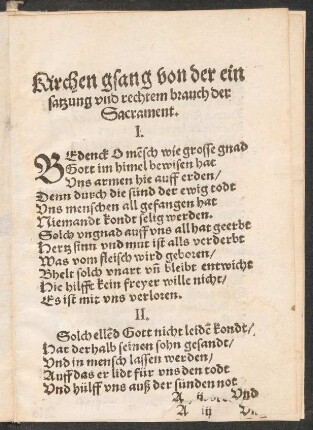 Kirchen gsang von der ein
satzung vnd rechtem brauch der
Sacrament.
I.
BEdenck O mẽsch wie grosse gnad
Gott im himel bewisen hat
Vns armen hie auff erden/
Denn durch die sünd der ewig todt
Vns menschen all gefangen hat
Niemandt kondt selig werden.
Solch vngnad auff vns all hat geerbt
Hertz sinn vnd mut ist alls verderbt
Was vom fleisch wird geboren/
Bhelt solch vnart vñ bleibt entwicht
Hie hilfft kein freyer wille nicht/
Es ist mit vns verloren.
II.
Solch ellẽd Gott nicht leidẽ kondt/
Hat derhalb seinen sohn gesandt/
Vnd in mensch lassen werden/
Auff das er lidt für vns den todt
Vnd hülff vns auß der sünden not
A Vnd
A iij